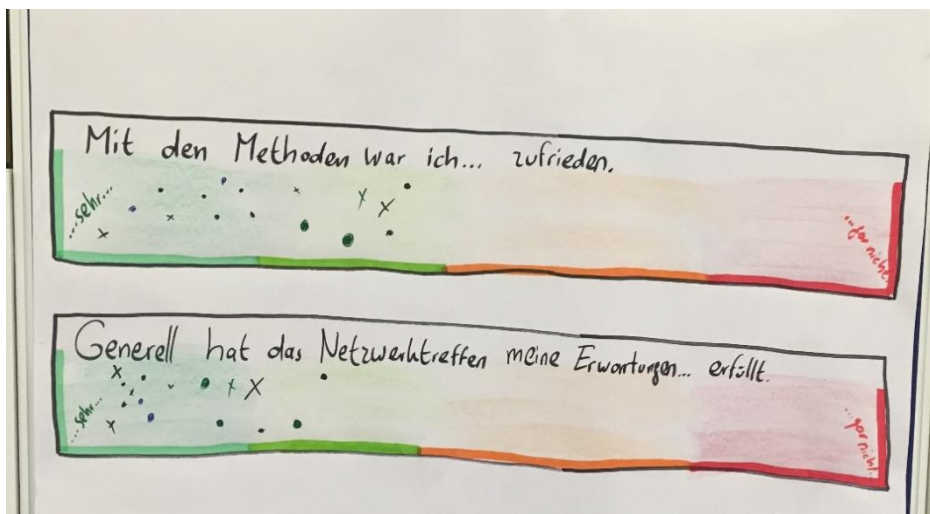 Mit den Methoden war ich... zufrieden.
...sehr...
...gar nicht.
Generell hat das Netzwerktreffen meine Erwartungen... erfüllt.
...sehr...
...gar nicht.